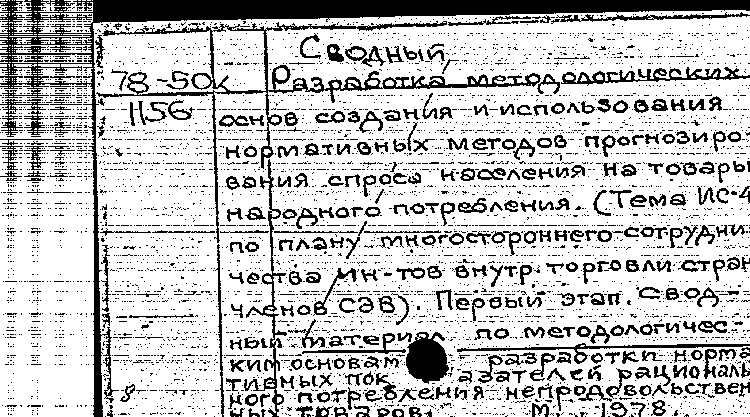 Сводный
78-50к Разработка методологических
1156 основ создания и использования
нормативных методов прогнозиро-
вания спроса населения на товары
народного потребления. (Тема ИС-4
по плану многостороннего сотрудни
чества ин-тов внутр. торговли стран
членов СЭВ). Первый этап. Свод-
ный материал по методологичес-
ким основам разработки норма
тивных пок азателей рациональ
ного потребления непродовольствен
ных товаров. М., 1978.
8